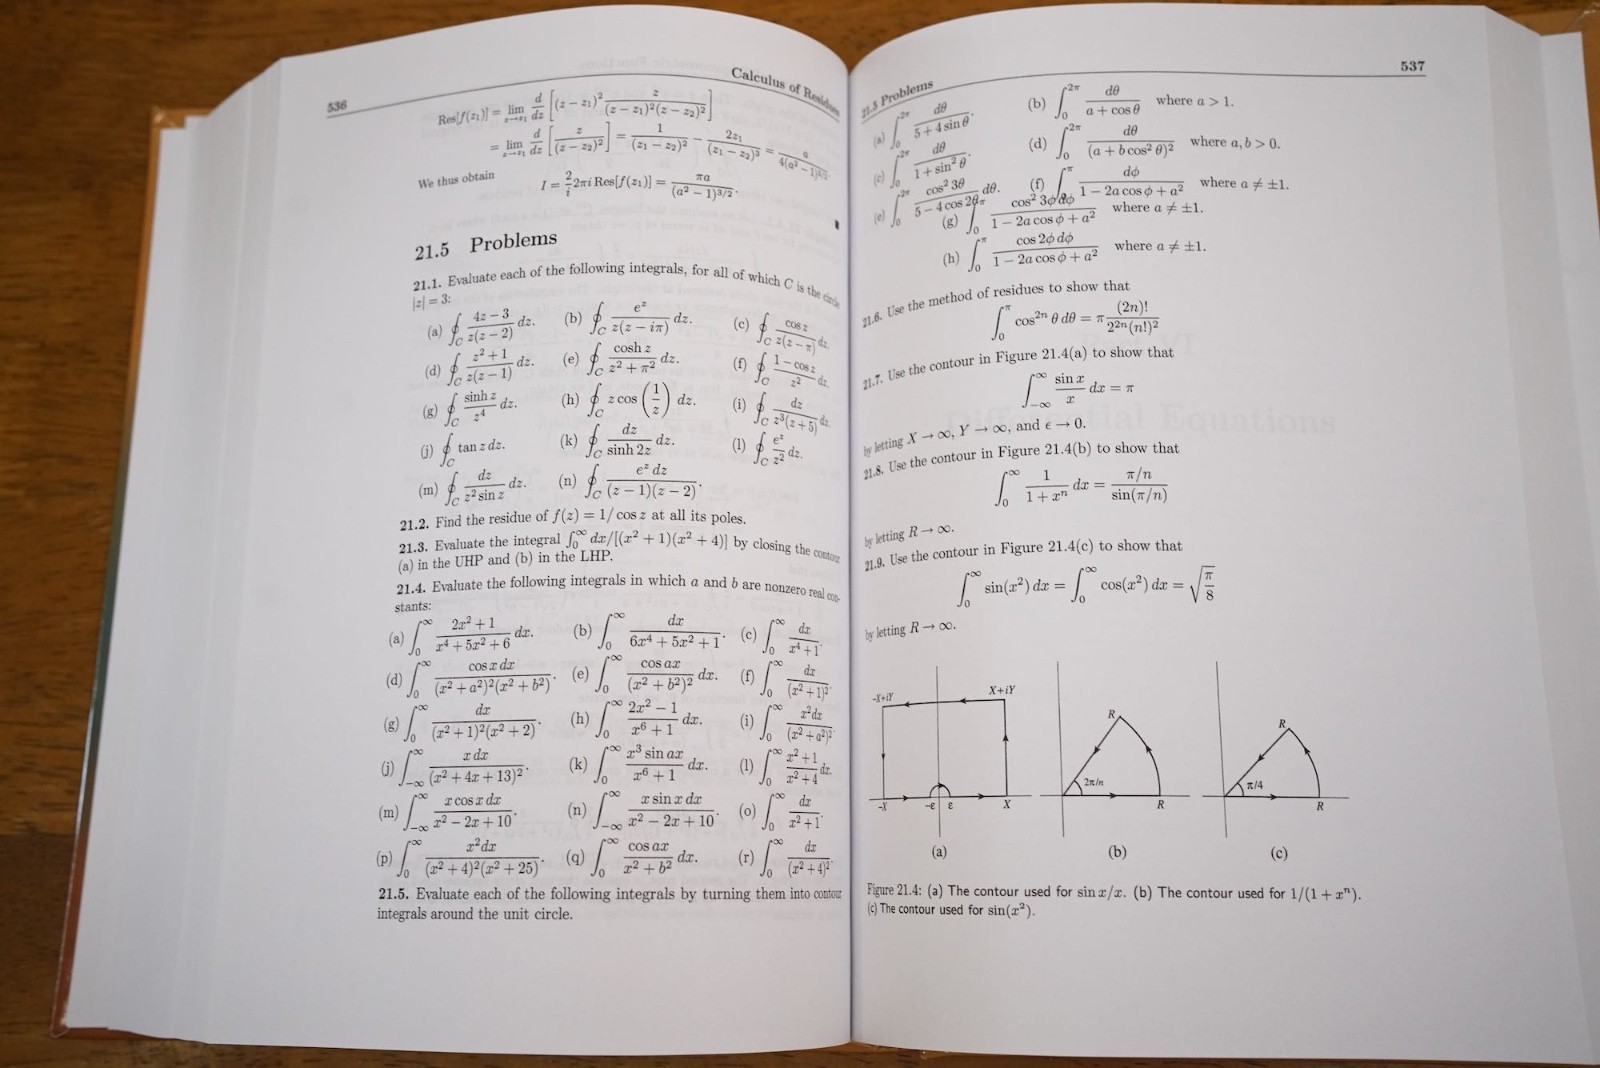 536
Calculus of Residues
Res[f(z₁)] = lim_{z→z₁} d/dz [(z − z₁)² z/((z − z₁)²(z − z₂)²)]
= lim_{z→z₁} d/dz [z/(z − z₂)²] = 1/(z₁ − z₂)² − 2z₁/(z₁ − z₂)³ = a/(4(a² − 1)^{3/2})
We thus obtain
I = (2/i) 2πi Res[f(z₁)] = πa/(a² − 1)^{3/2}.
21.5 Problems
21.1. Evaluate each of the following integrals, for all of which C is the circle
|z| = 3:
(a) ∮_C (4z − 3)/(z(z − 2)) dz. (b) ∮_C e^z/(z(z − iπ)) dz. (c) ∮_C cos z/(z(z − π)) dz.
(d) ∮_C (z² + 1)/(z(z − 1)) dz. (e) ∮_C cosh z/(z² + π²) dz. (f) ∮_C (1 − cos z)/z² dz.
(g) ∮_C sinh z/z⁴ dz. (h) ∮_C z cos(1/z) dz. (i) ∮_C dz/(z³(z + 5)) dz.
(j) ∮_C tan z dz. (k) ∮_C dz/(sinh 2z) dz. (l) ∮_C e^z/z² dz.
(m) ∮_C dz/(z² sin z) dz. (n) ∮_C e^z dz/((z − 1)(z − 2)).
21.2. Find the residue of f(z) = 1/ cos z at all its poles.
21.3. Evaluate the integral ∫₀^∞ dx/[(x² + 1)(x² + 4)] by closing the contour
(a) in the UHP and (b) in the LHP.
21.4. Evaluate the following integrals in which a and b are nonzero real con-
stants:
(a) ∫₀^∞ (2x² + 1)/(x⁴ + 5x² + 6) dx. (b) ∫₀^∞ dx/(6x⁴ + 5x² + 1). (c) ∫₀^∞ dx/(x⁴ + 1).
(d) ∫₀^∞ cos x dx/((x² + a²)²(x² + b²)). (e) ∫₀^∞ cos ax/(x² + b²)² dx. (f) ∫₀^∞ dx/(x² + 1)².
(g) ∫₀^∞ dx/((x² + 1)²(x² + 2)). (h) ∫₀^∞ (2x² − 1)/(x⁶ + 1) dx. (i) ∫₀^∞ x²dx/(x² + a²)².
(j) ∫_{−∞}^∞ x dx/(x² + 4x + 13)². (k) ∫₀^∞ x³ sin ax/(x⁶ + 1) dx. (l) ∫₀^∞ (x² + 1)/(x² + 4) dx.
(m) ∫_{−∞}^∞ x cos x dx/(x² − 2x + 10). (n) ∫_{−∞}^∞ x sin x dx/(x² − 2x + 10). (o) ∫₀^∞ dx/(x² + 1).
(p) ∫₀^∞ x²dx/((x² + 4)²(x² + 25)). (q) ∫₀^∞ cos ax/(x² + b²) dx. (r) ∫₀^∞ dx/(x² + 4)².
21.5. Evaluate each of the following integrals by turning them into contour
integrals around the unit circle.
21.5 Problems
537
(a) ∫₀^{2π} dθ/(5 + 4 sin θ). (b) ∫₀^{2π} dθ/(a + cos θ) where a > 1.
(c) ∫₀^{2π} dθ/(1 + sin² θ). (d) ∫₀^{2π} dθ/(a + b cos² θ)² where a, b > 0.
(e) ∫₀^{2π} cos² 3θ/(5 − 4 cos 2θ) dθ. (f) ∫₀^π dφ/(1 − 2a cos φ + a²) where a ≠ ±1.
(g) ∫₀^π cos² 3φ dφ/(1 − 2a cos φ + a²) where a ≠ ±1.
(h) ∫₀^π cos 2φ dφ/(1 − 2a cos φ + a²) where a ≠ ±1.
21.6. Use the method of residues to show that
∫₀^π cos^{2n} θ dθ = π (2n)!/(2^{2n}(n!)²)
21.7. Use the contour in Figure 21.4(a) to show that
∫_{−∞}^∞ sin x/x dx = π
by letting X → ∞, Y → ∞, and ϵ → 0.
21.8. Use the contour in Figure 21.4(b) to show that
∫₀^∞ 1/(1 + xⁿ) dx = (π/n)/(sin(π/n))
by letting R → ∞.
21.9. Use the contour in Figure 21.4(c) to show that
∫₀^∞ sin(x²) dx = ∫₀^∞ cos(x²) dx = √(π/8)
by letting R → ∞.
-X+iY X+iY
-X -ε ε X
R
2π/n
R
R
π/4
R
(a) (b) (c)
Figure 21.4: (a) The contour used for sin x/x. (b) The contour used for 1/(1 + xⁿ).
(c) The contour used for sin(x²).